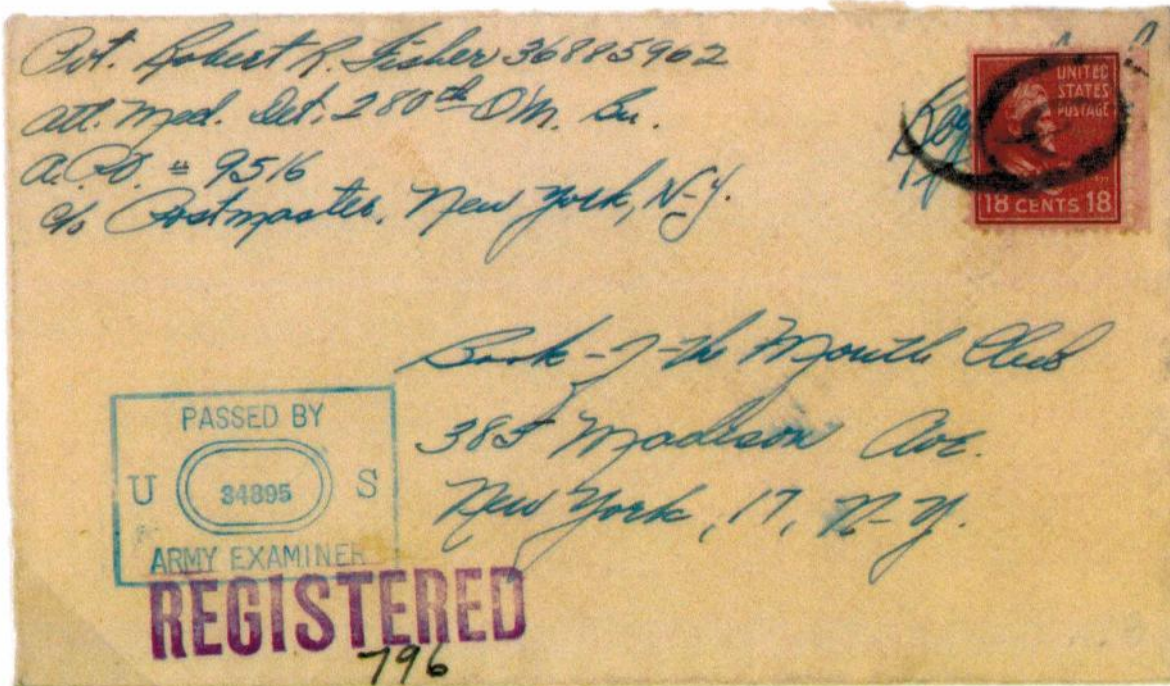 Pvt. Robert R. Fisher 36885902
Att. Med. Det. 280th QM. Bn.
A.P.O. # 9516
c/o Postmaster, New York, N-Y.
UNITED
STATES
POSTAGE
18 CENTS 18
Book-of-the Month Club
385 Madison Ave.
New York, 17, N-Y.
PASSED BY
U 34895 S
ARMY EXAMINER
REGISTERED
796